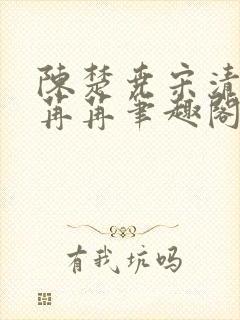 陳楚堯宋清
苒苒筆趣閣
有我坑吗